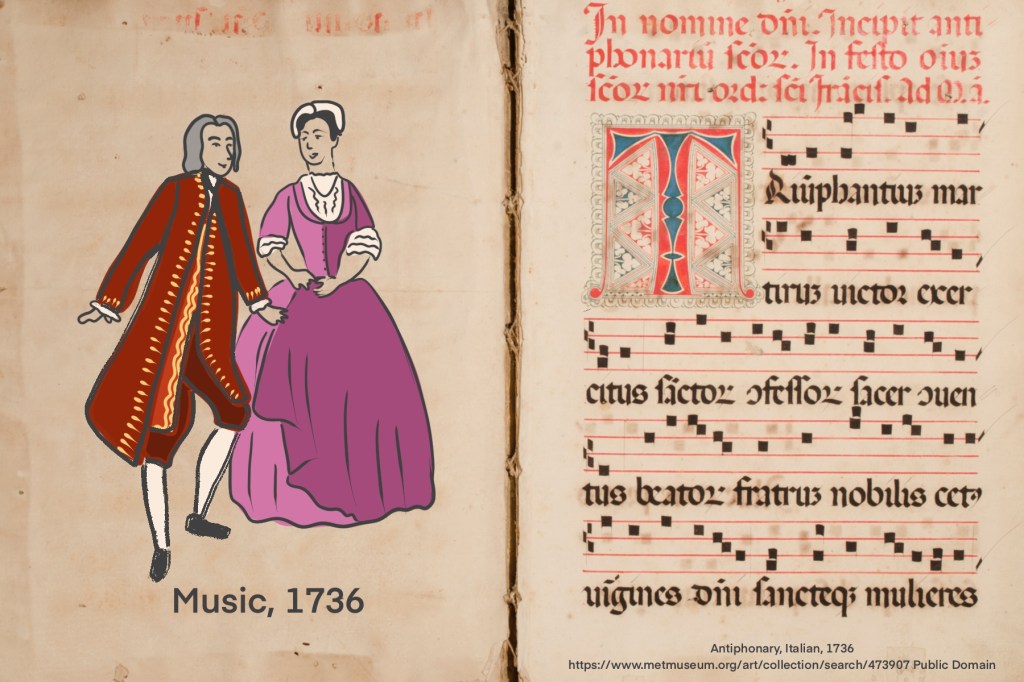 Music, 1736
In nomine dñi. Incipit anti
phonariũ scõr. In festo oĩuꝫ
scõr nr̃i ord: sc̃i frãcis. Ad
T Riũphantiuꝫ mar
tiruꝫ uictor exer
citus sãctor ɔfessor sacer ɔuen
tus beator fratruꝫ nobilis cetꝰ
uĩgines dñi sancteqꝫ mulieres
Antiphonary, Italian, 1736
https://www.metmuseum.org/art/collection/search/473907 Public Domain